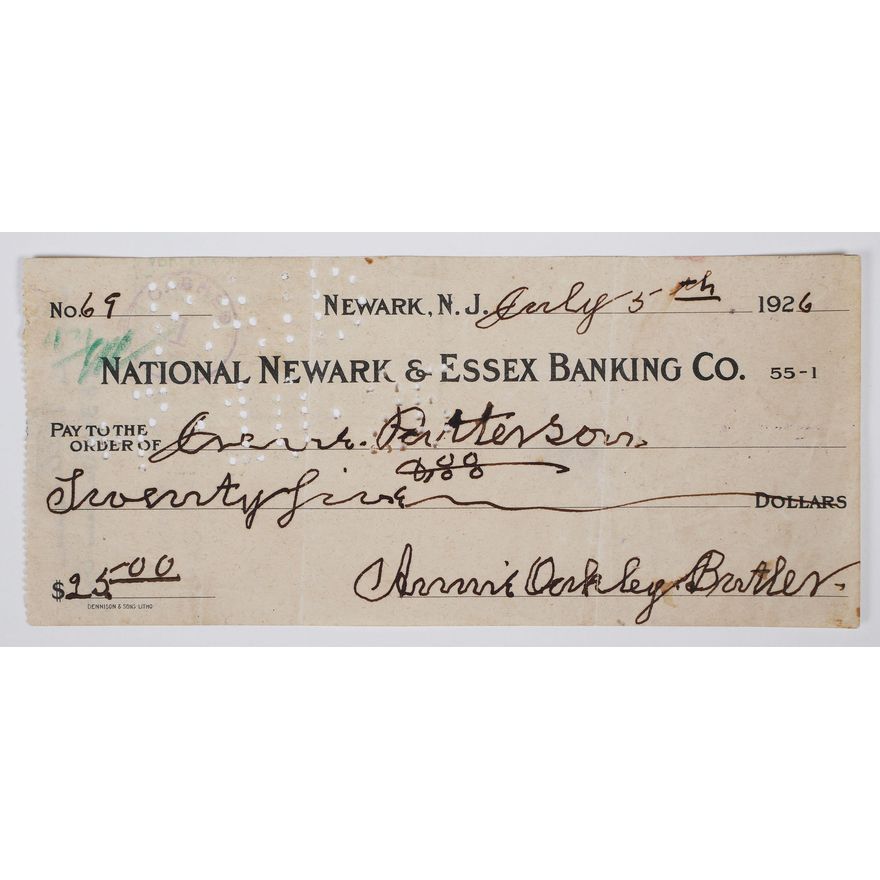 No. 69 NEWARK, N. J. July 5th 1926
NATIONAL NEWARK & ESSEX BANKING CO. 55-1
PAY TO THE ORDER OF Patterson
00/100
Twenty five DOLLARS
$25.00
Annie Oakley Butler.
DENNISON & SONS LITHO